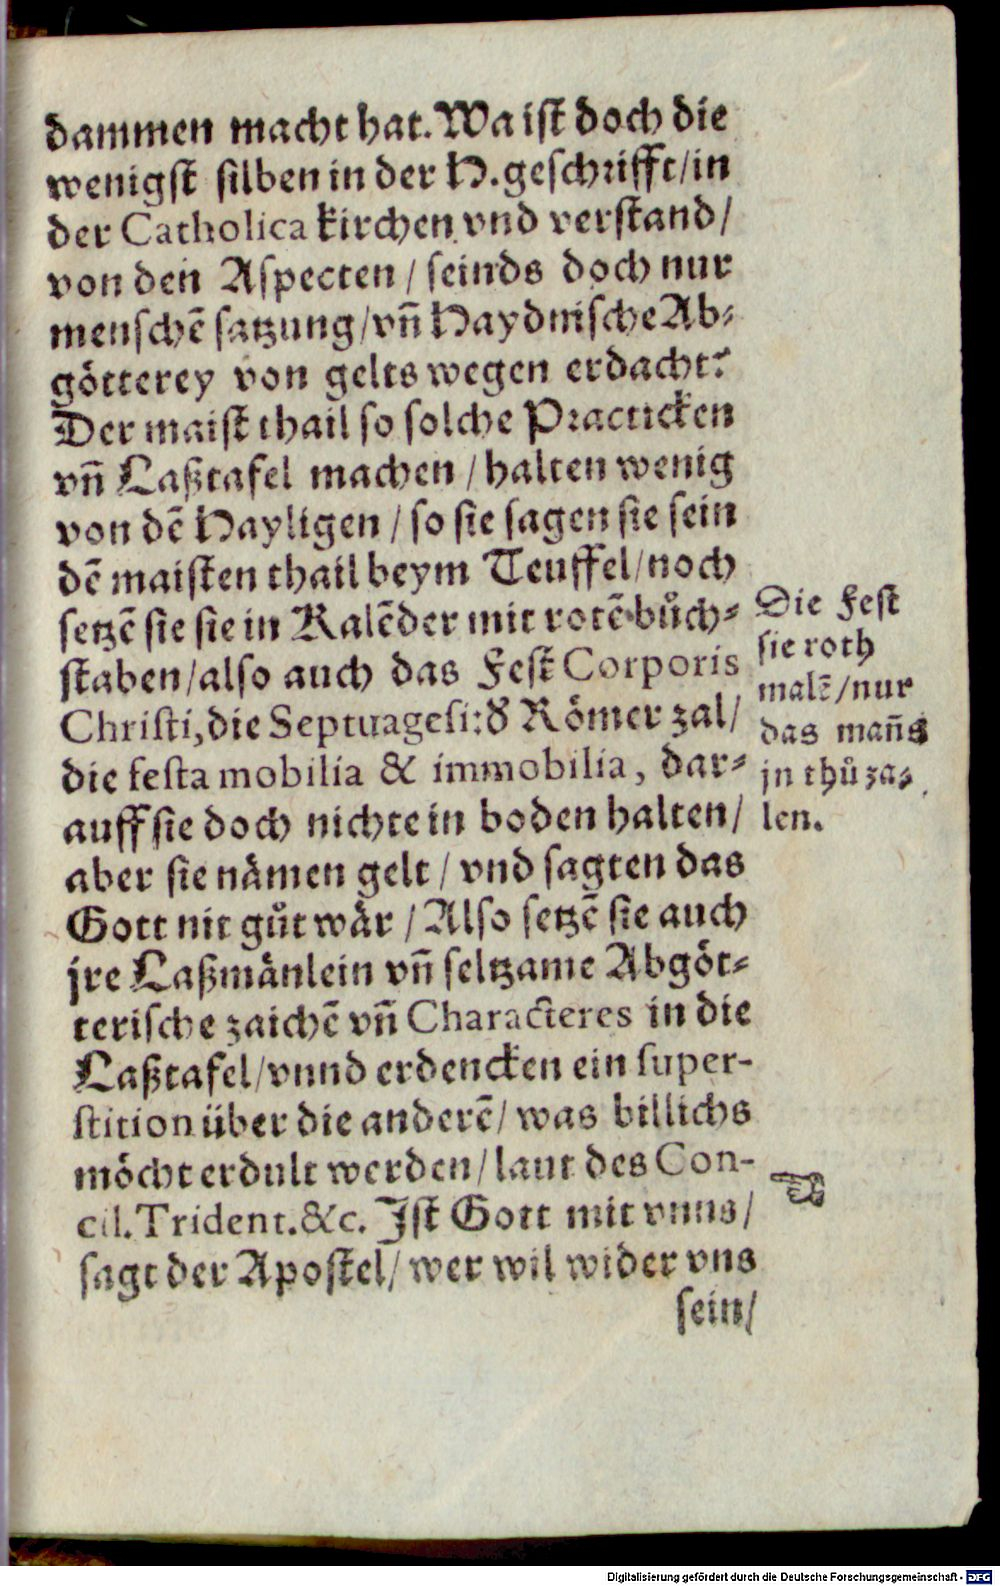 dammen macht hat. Wa ist doch die
wenigst silben in der H. geschrifft/ in
der Catholica kirchen vnd verstand/
von den Aspecten / seinds doch nur
menschẽ satzung/ vñ Haydnische Ab⸗
götterey von gelts wegen erdacht?
Der maist thail so solche Practicken
vñ Laßtafel machen / halten wenig
von dẽ Hayligen / so sie sagen sie sein
dẽ maisten thail beym Teuffel/ noch
setzẽ sie sie in Kalẽder mit rotẽ bůch⸗
staben/ also auch das Fest Corporis
Christi, die Septuagesi: d̕ Römer zal/
die festa mobilia & immobilia, dar⸗
auff sie doch nichte in boden halten/
aber sie nämen gelt / vnd sagten das
Gott nit gůt wår / Also setzẽ sie auch
jre Laßmänlein vñ seltzame Abgöt⸗
terische zaichẽ vñ Characteres in die
Laßtafel/ vnnd erdencken ein super-
stition über die anderẽ/ was billichs
möcht erdult werden/ laut des Con-
cil. Trident. &c. Ist Gott mit vnns/
sagt der Apostel/ wer wil wider vns
sein/
Die Fest
sie roth
malẽ/ nur
das mañs
jn thů za⸗
len.
☜
Digitalisierung gefördert durch die Deutsche Forschungsgemeinschaft - DFG